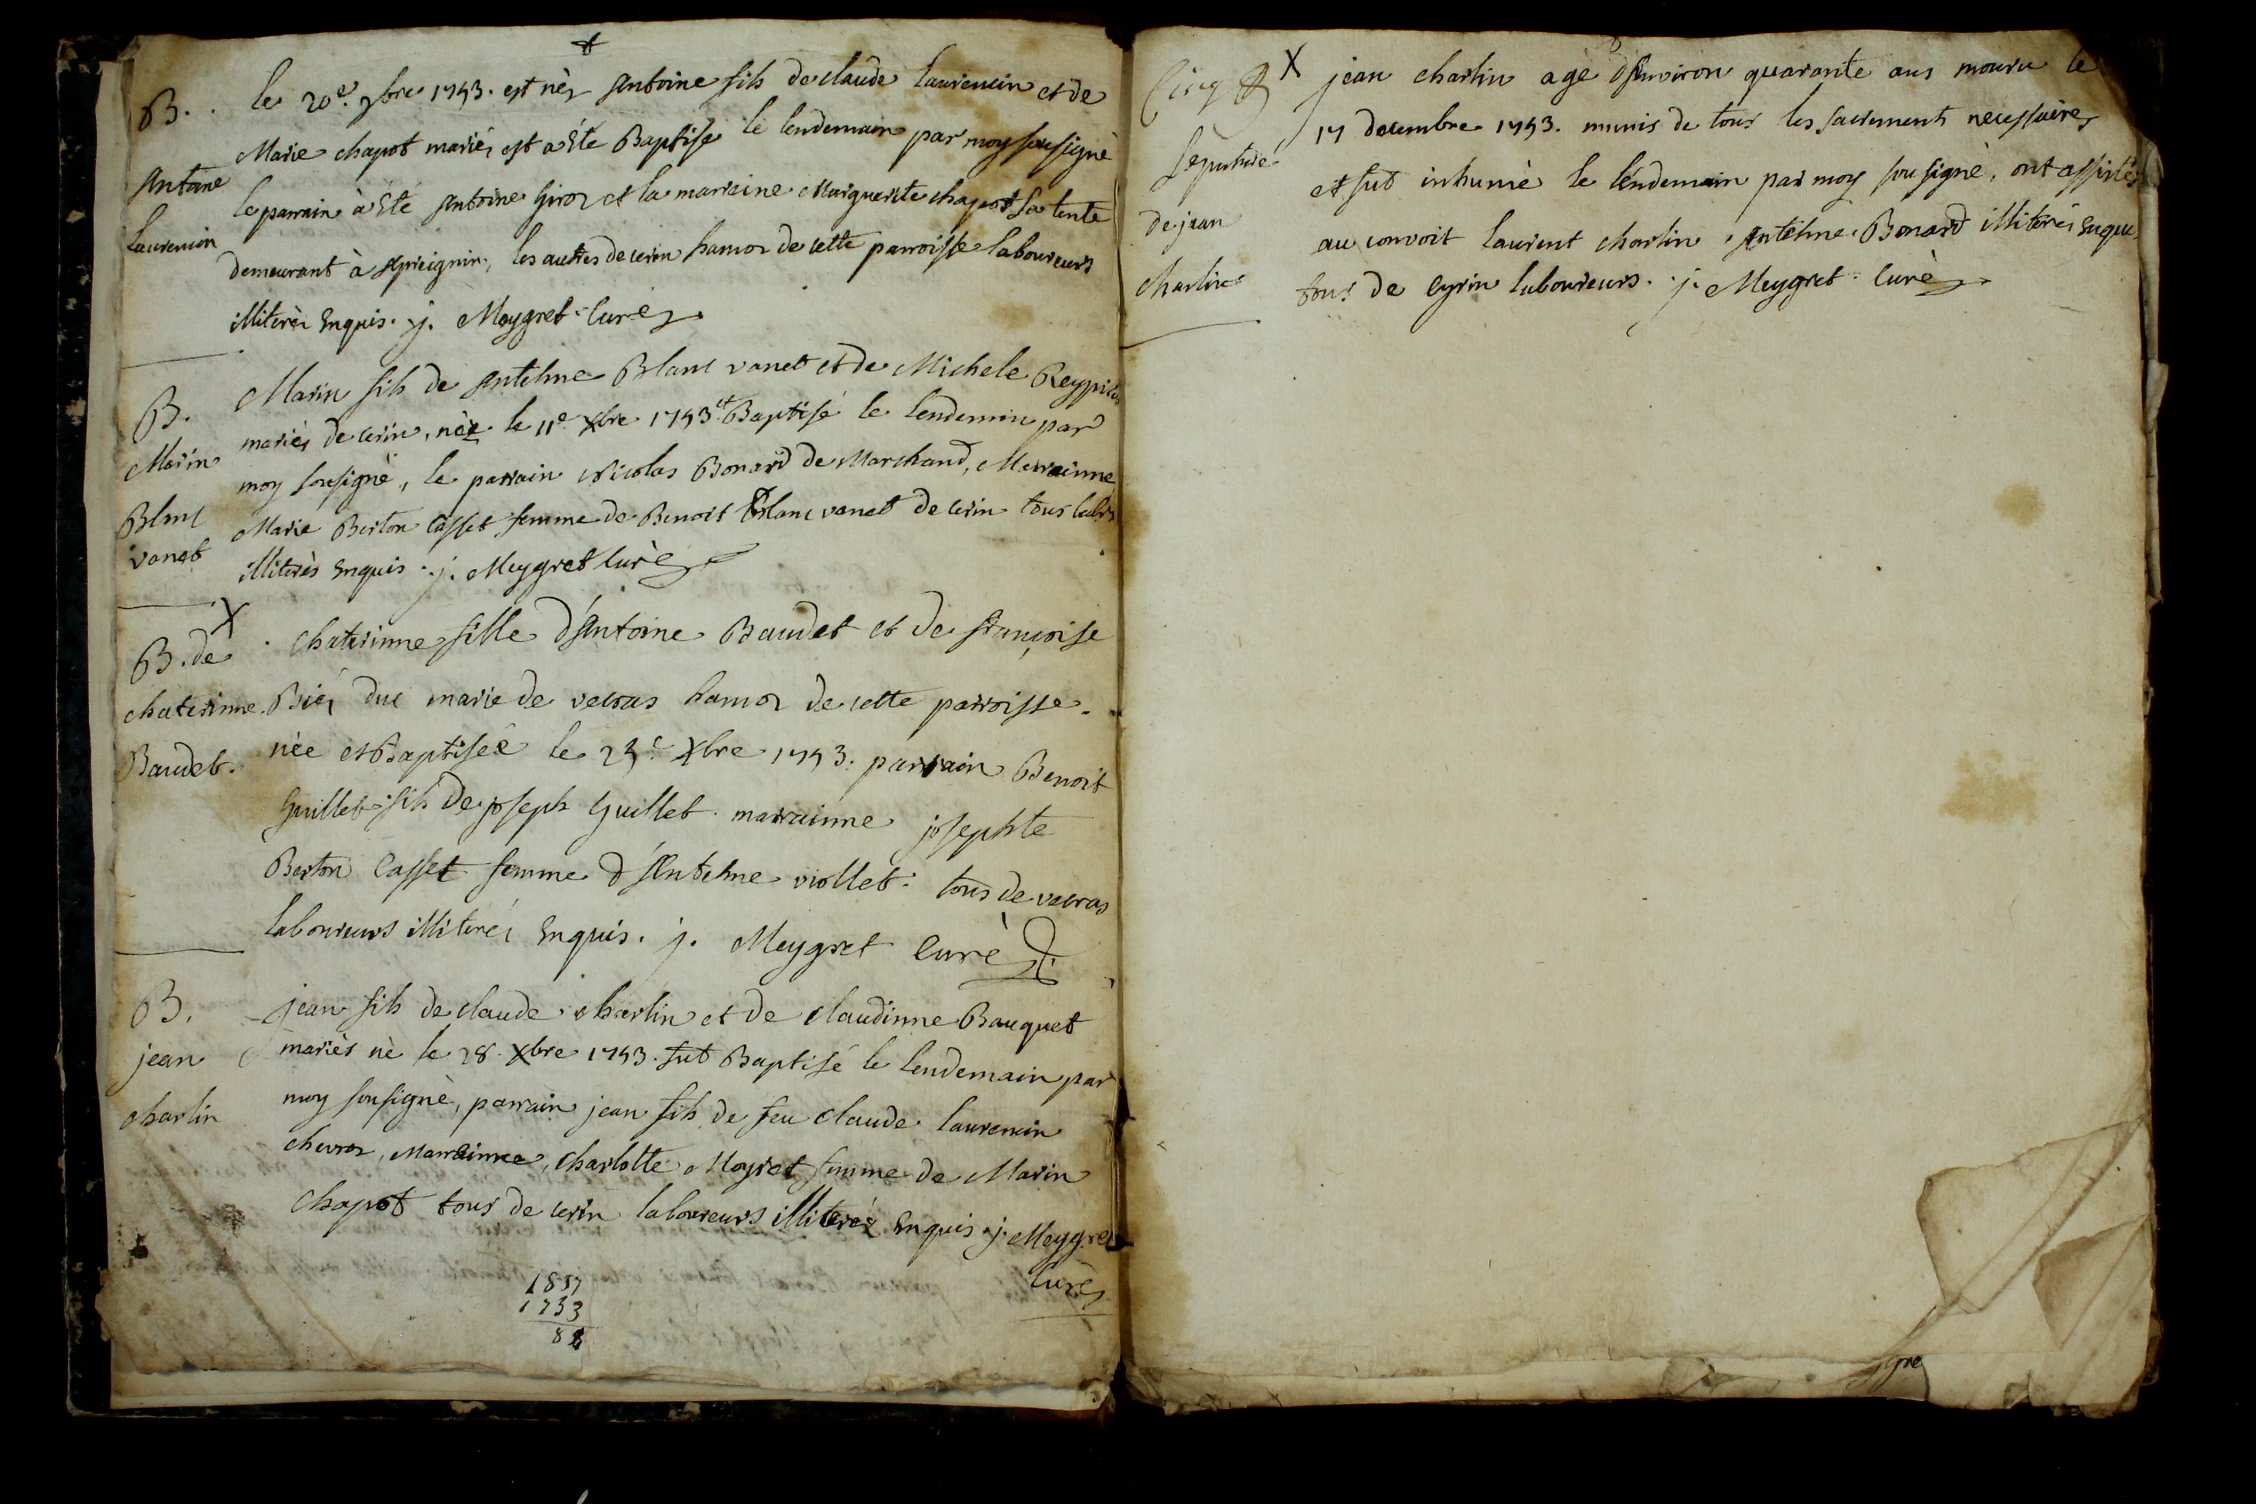 B.
Antoine
Laurencin
le 20e. 9bre 1753. est néz Antoine fils de claude Laurencin et de
Marie chapot mariés est a Eté Baptise le lendemain par moy sousigné
le parrain à Eté Antoine Giroz et la marraine Marguerite chapot sa tente
demeurant à Apreignin, les autres de cerin hamoz de cette parroisse laboureurs
illiterés Enquis. j. Meygret Curé
B.
Marin
Blanc
vanet
Marin fils de Antelme Blanc vanet et de Michele
mariés de cerin, née le 11e Xbre 1753 et Baptisé le lendemin par
moy sousigné, le parrain Nicolas Bonard de Marchand, Marrainne
Marie Berton Casset femme de Benoit Blanc vanet de cerin tous labrs
illiterés Enquis. j. Meygret Curé
X
B. de
chaterinne
Baudet.
chaterinne fille d'Antoine Baudet et de françoise
duc marie de vecras hamoz de cette parroisse.
née et Baptisée le 23e Xbre 1753. parrain Benoit
Guillet fils de joseph Guillet. marrainne josephte
Berton Casset femme d'Antelme viollet. tous de vecras
laboureurs illiterés Enquis. j. Meygret Curé
B.
jean
charlin
jean fils de claude charlin et de claudinne Bauquet
mariés né le 28. Xbre 1753. fut Baptisé le lendemain par
moy sousigné, parrain jean fils de feu claude laurencin
chevroz, Marrainne, charlotte Moyret femme de Marin
chapot tous de cerin laboureurs illiteréz Enquis. j. Meygret
Curé
1857
1733
88
Cinq X
Sepulture
de jean
charlin
jean charlin agé d'Environ quarante ans mouru le
17 decembre 1753. munis de tous les sacrements necessaires
et fut inhumé le lendemain par moy sousigné, ont assistés
au convoit laurent charlin, Antelme Bonard illiterés Enquis
tous de Cyrin laboureurs. j. Meygret Curé